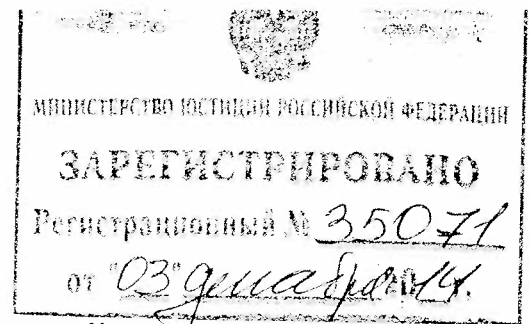 МИНИСТЕРСТВО ЮСТИЦИИ РОССИЙСКОЙ ФЕДЕРАЦИИ
ЗАРЕГИСТРИРОВАНО
Регистрационный № 35071
от "03" декабря 2014.